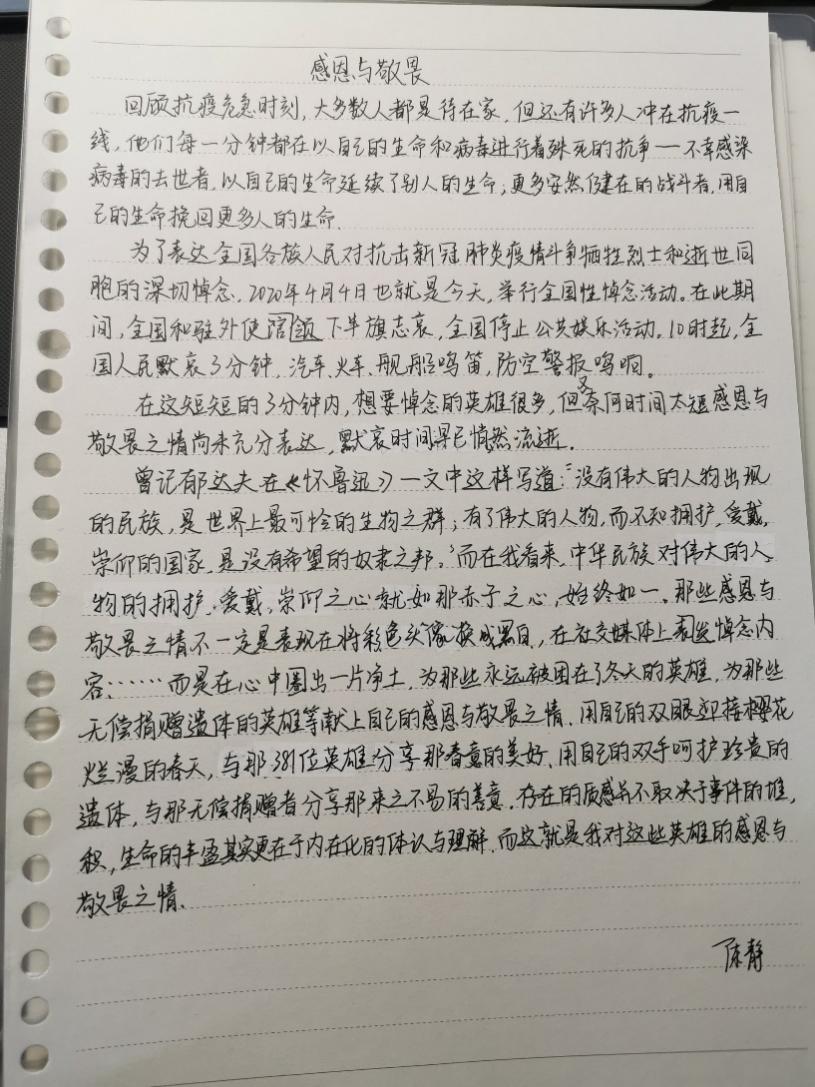 感恩与敬畏
回顾抗疫危急时刻，大多数人都是待在家，但还有许多人冲在抗疫一
线，他们每一分钟都在以自己的生命和病毒进行着殊死的抗争——不幸感染
病毒的去世者，以自己的生命延续了别人的生命；更多安然健在的战斗者，用自
己的生命挽回更多人的生命。
为了表达全国各族人民对抗击新冠肺炎疫情斗争牺牲烈士和逝世同
胞的深切悼念，2020年4月4日也就是今天，举行全国性悼念活动。在此期
间，全国和驻外使馆领下半旗志哀，全国停止公共娱乐活动。10时起，全
国人民默哀3分钟，汽车、火车、舰船鸣笛，防空警报鸣响。
在这短短的3分钟内，想要悼念的英雄很多，但又奈何时间太短感恩与
敬畏之情尚未充分表达，默哀时间早已悄然流逝。
曾记郁达夫在《怀鲁迅》一文中这样写道：“没有伟大的人物出现
的民族，是世界上最可怜的生物之群；有了伟大的人物，而不知拥护，爱戴，
崇仰的国家，是没有希望的奴隶之邦。”而在我看来，中华民族对伟大的人
物的拥护、爱戴、崇仰之心就如那赤子之心，始终如一。那些感恩与
敬畏之情不一定是表现在将彩色头像换成黑白，在社交媒体上发悼念内
容、……而是在心中圈出一片净土，为那些永远被困在了冬天的英雄，为那些
无偿捐赠遗体的英雄等献上自己的感恩与敬畏之情。用自己的双眼迎接樱花
烂漫的春天，与那381位英雄分享那春意的美好、用自己的双手呵护珍贵的
遗体，与那无偿捐赠者分享那来之不易的善意。存在的质感并不取决于事件的堆
积，生命的丰盈其实更在于内在化的体认与理解。而这就是我对这些英雄的感恩与
敬畏之情。
陈静